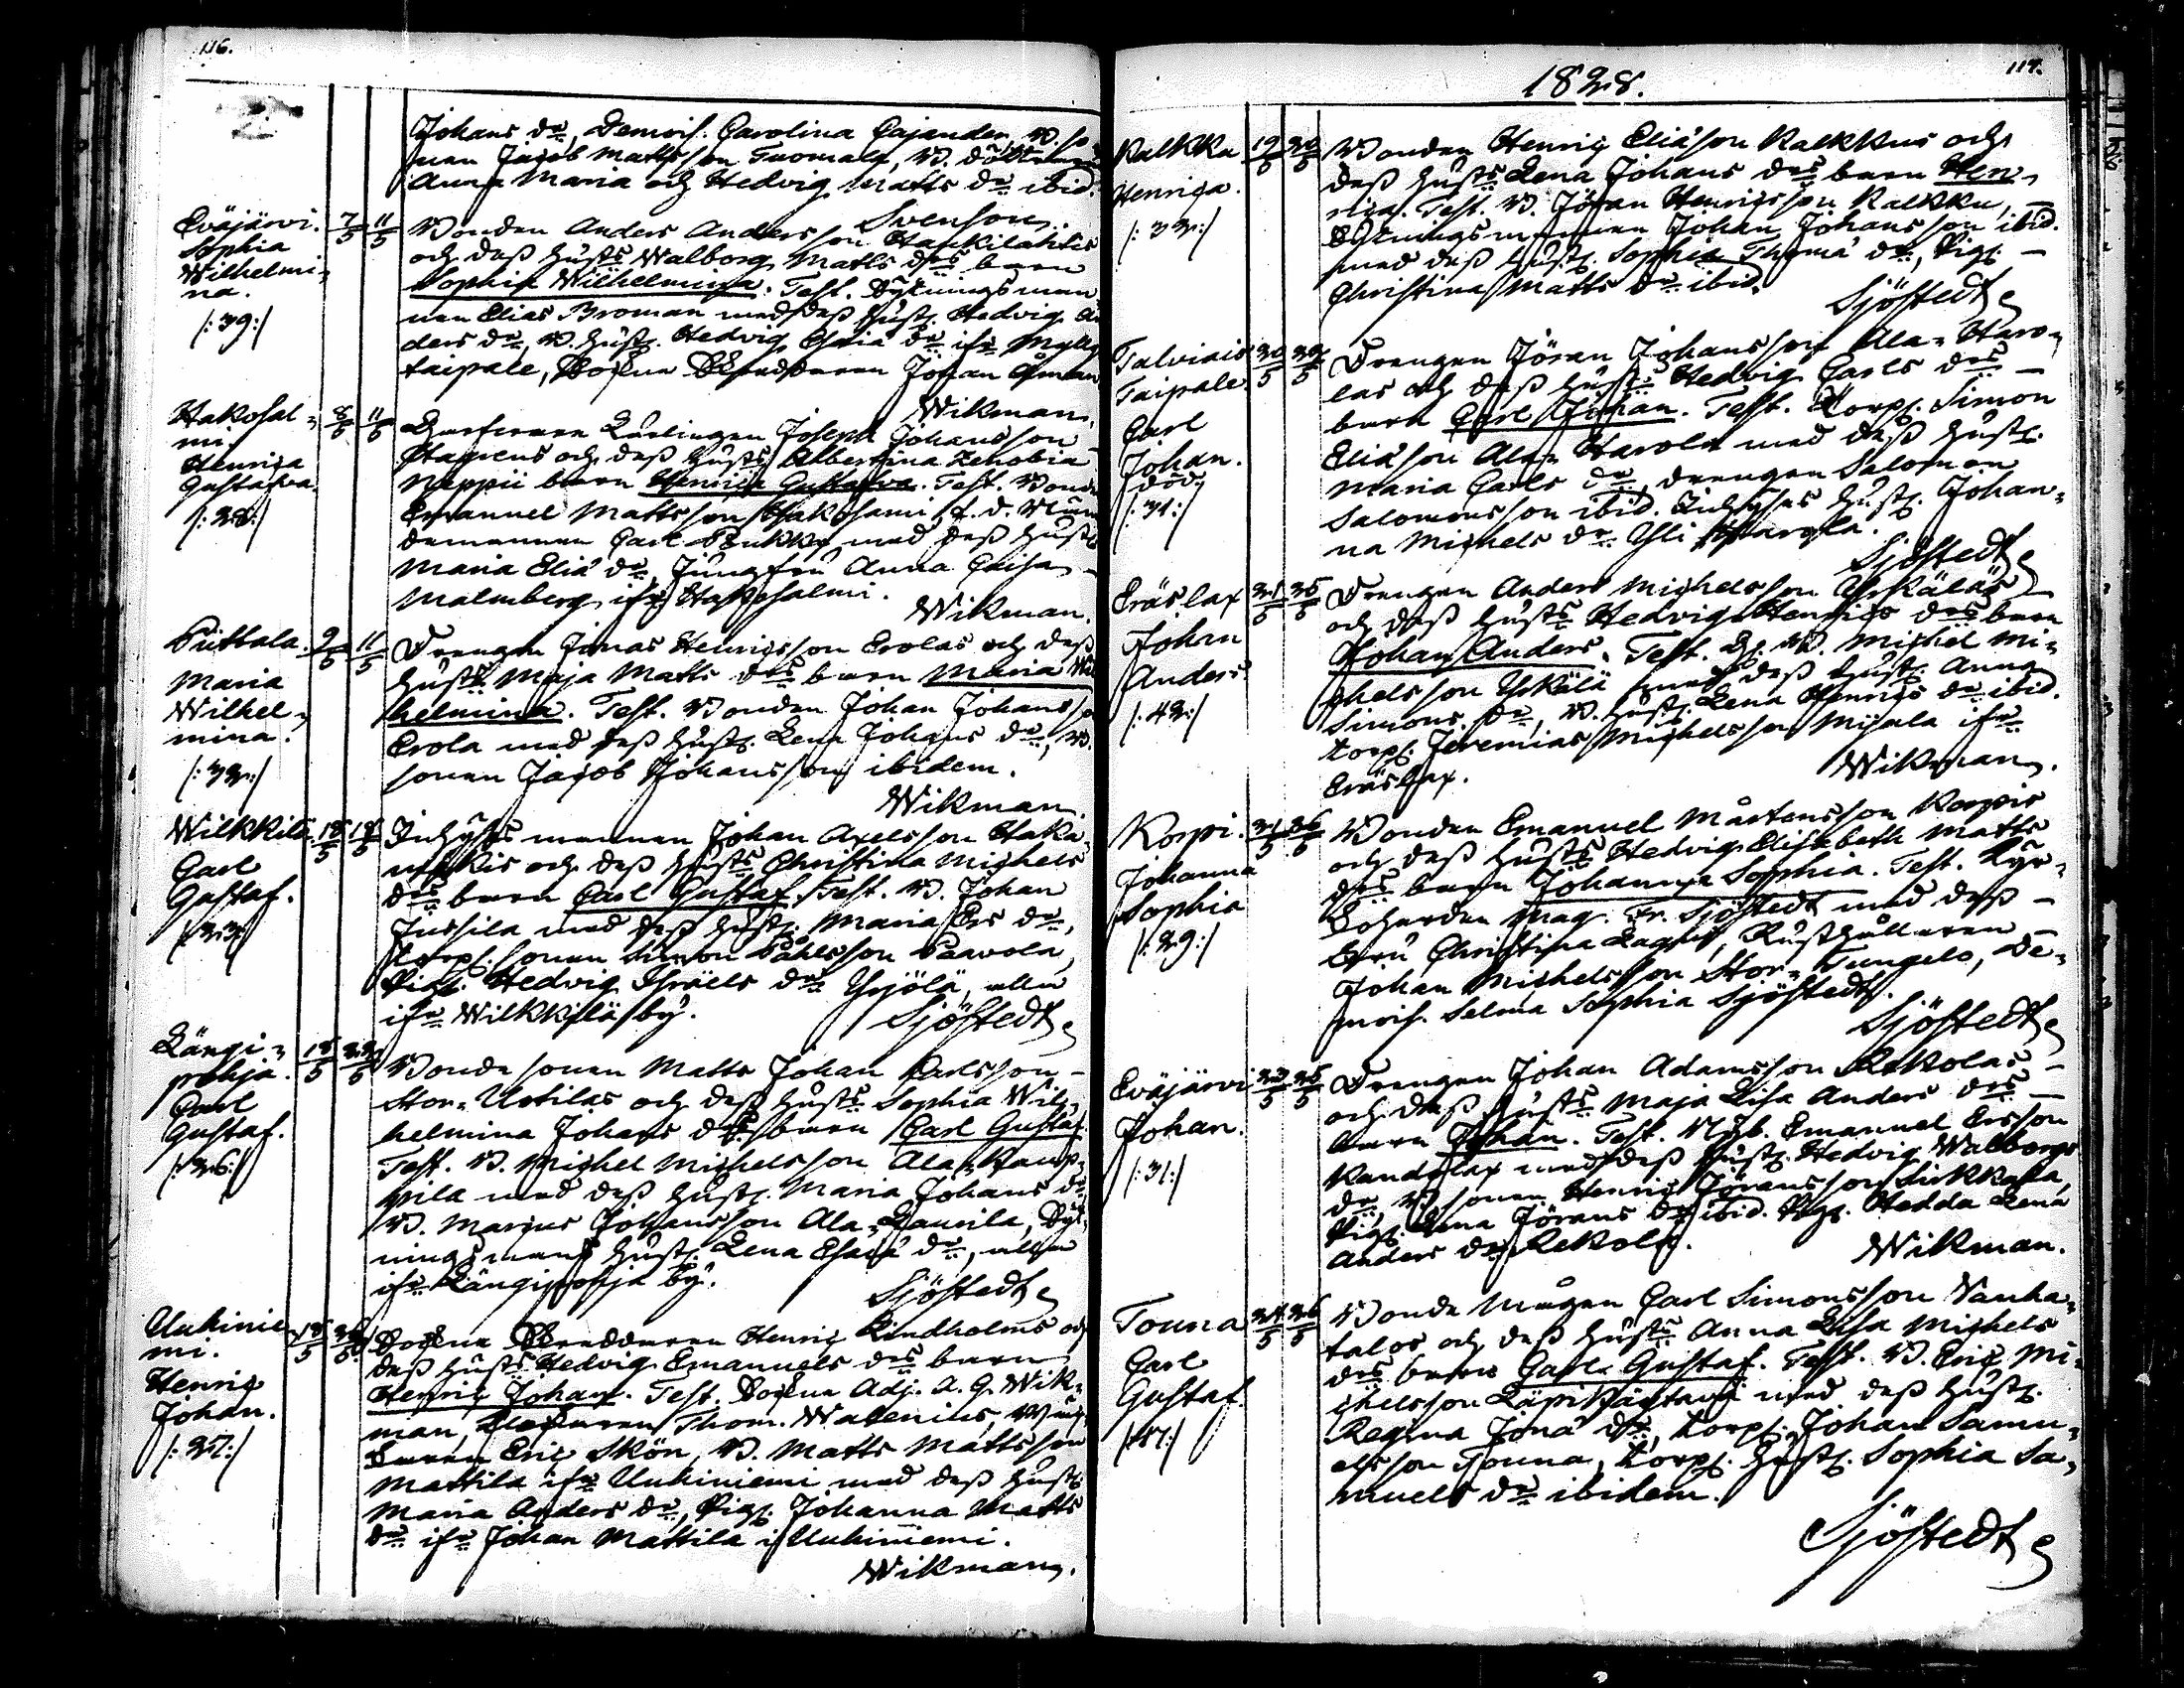 116.
Johans dr, Demois. Carolina Cajander, B. so-
nen Jacob Mattsson Tuomala, B. döttrarne
Anna Maria och Hedvig Matts dr ibid.
Svenson.
Eväjärvi.
Sophia
Wilhelmi-
na.
/:39:/
7/5 11/5
Bonden Anders Andersson Haukilahtis
och dess hustrs Walborg Matts drs barn
Sophia Wilhelmina. Test. Dyknings man-
nen Elias Broman med dess hust. Hedvig An
ders dr, B. hust. Hedvig Esaiä dr ifr Mylly
taipale, Sockne Skräddaren Johan Öman
Wikman.
Hakosal-
mi.
Henrica
Gustafva.
/:28:/
8/5 11/5
Joseph Johansson
Stagrens och dess hustrs Albertina Zenobia
Neppii barn Henrica Gustafva. Test. Bonden
Emanuel Mattsson Hakosami, f. d. Näm
demannen Carl med dess hust
Maria Eliä dr, Jungfru Anna Caisa
Malmberg ifr Hakosalmi.
Wikman.
Puttala.
Maria
Wilhel-
mina.
/:32:/
9/5 11/5
Drengen Jonas Henricsson Erolas och dess
hustrs Maja Matts drs barn Maria Wil
helmina. Test. Bonden Johan Johansson
Erola med dess hust. Lena Johans dr, B.
sonen Jacob Johansson ibidem.
Wikman.
Wilkkilä
Carl
Gustaf.
/:33:/
18/5 18/5
Inhyses mannen Johan Axelsson Haka-
mäkis och dess hustrs Christina Michels
drs barn Carl Gustaf. Test. B. Johan
Jussila med dess hust. Maria Ers dr,
Torp. sonen Simon Påhlsson Paavola,
Pig. Hedvig Israels dr Yrjölä, alla
ifr Wilkkilä by.
Sjöstedt
Längi-
pohja.
Carl
Gustaf.
/:26:/
18/5 22/5
Bonde sonen Matts Johan Carlsson
Stor-Uotilas och dess hustrs Sophia Wil-
helmina Johans drs barn Carl Gustaf
Test. B. Michel Michelsson Ala-Kaup-
pila med dess hust. Maria Johans dr
B. Marcus Johansson Ala-Laurila, Dyk-
nings mans hust. Lena Esaiä dr, alla
ifr Längipohja by.
Sjöstedt
Uuhinie-
mi.
Henric
Johan.
/:27:/
18/5
Sockne Skräddaren Henric Lindholms och
dess hustrs Hedvig Emanuels drs barn
Henric Johan. Test. Sockne Adj. A. G. Wik-
man, Klockaren Thom. Walenius,
Eric Skön, B. Matts Mattsson
Mattila ifr Uuhiniemi med dess hust
Maria Anders dr, Pig. Johanna Matts
dr ifr Johan Mattila i Uuhiniemi.
Wikman.
1828.
117.
Kalkku
Henrica.
/:32:/
19/5 20/5
Bonden Henric Eliäson Kalkkus och
dess hustrs Lena Johans drs barn Hen-
rica. Test. B. Jöran Henricsson Kalkku,
Dyknings mannen Johan Johansson ibid.
med dess hust. Sophia Thomä dr, Pig.
Christina Matts dr ibid.
Sjöstedt
Talviais
Taipale
Carl
Johan.
död,
/:31:/
20/5 22/5
Drengen Jöran Johansson Ala-Haro-
las och dess hustrs Hedvig Carls drs
barn Carl Johan. Test. Torp. Simon
Eliäson Ala-Harola med dess hust.
Maria Carls dr, drengen Salomon
Salomonsson ibid. Inhyses hust. Johan-
na Michels dr Yli Harola.
Sjöstedt
Eräslax
Johan
Anders
/:42:/
21/5 25/5
Drengen Anders Michelsson Yrkäläs
och dess hustrs Hedvig Henrics drs barn
Johan Anders. Test. B. Michel Mi-
chelsson Yrkälä med dess hust. Anna
Simons dr, B. hust. Lena Henrics dr ibid.
Torp. Jeremias Michelsson Mijala ifr
Eräslax.
Wikman.
Korpi.
Johanna
Sophia
/:29:/
21/5 26/5
Bonden Emanuel Mårtensson Korpis
och dess hustrs Hedvig Elisabeth Matts
drs barn Johanna Sophia. Test. Kyr-
koherden Mag. Fr. Sjöstedt med dess
Fru Christina Lagus, Rusthållaren
Johan Michelsson Stor-Tungelo, De-
mois. Selma Sophia Sjöstedt.
Sjöstedt
Eväjärvi
Johan.
/:31:/
23/5 25/5
Drengen Johan Adamsson Rekolas
och dess hustrs Maja Lisa Anders drs
barn Johan. Test. Nyb. Emanuel Ersson
Kandolax med dess hust. Hedvig Walborgs
dr, B. sonen Henric Jöransson Sirkkala,
Pig. Lena Jörans dr ibid. Pig. Hedda Lena
Anders dr Rekola.
Wikman.
Touna
Carl
Gustaf.
24/5 26/5
Bonde Mågen Carl Simonsson Vanha-
talos och dess hustrs Anna Lisa Michels
drs barn Carl Gustaf. Test. B. Eric Mi-
chelsson med dess hust.
Regina Jonä dr, Torp. Johan Samu-
elsson Touna, Torp. hust. Sophia Sa-
muels dr ibidem.
Sjöstedt